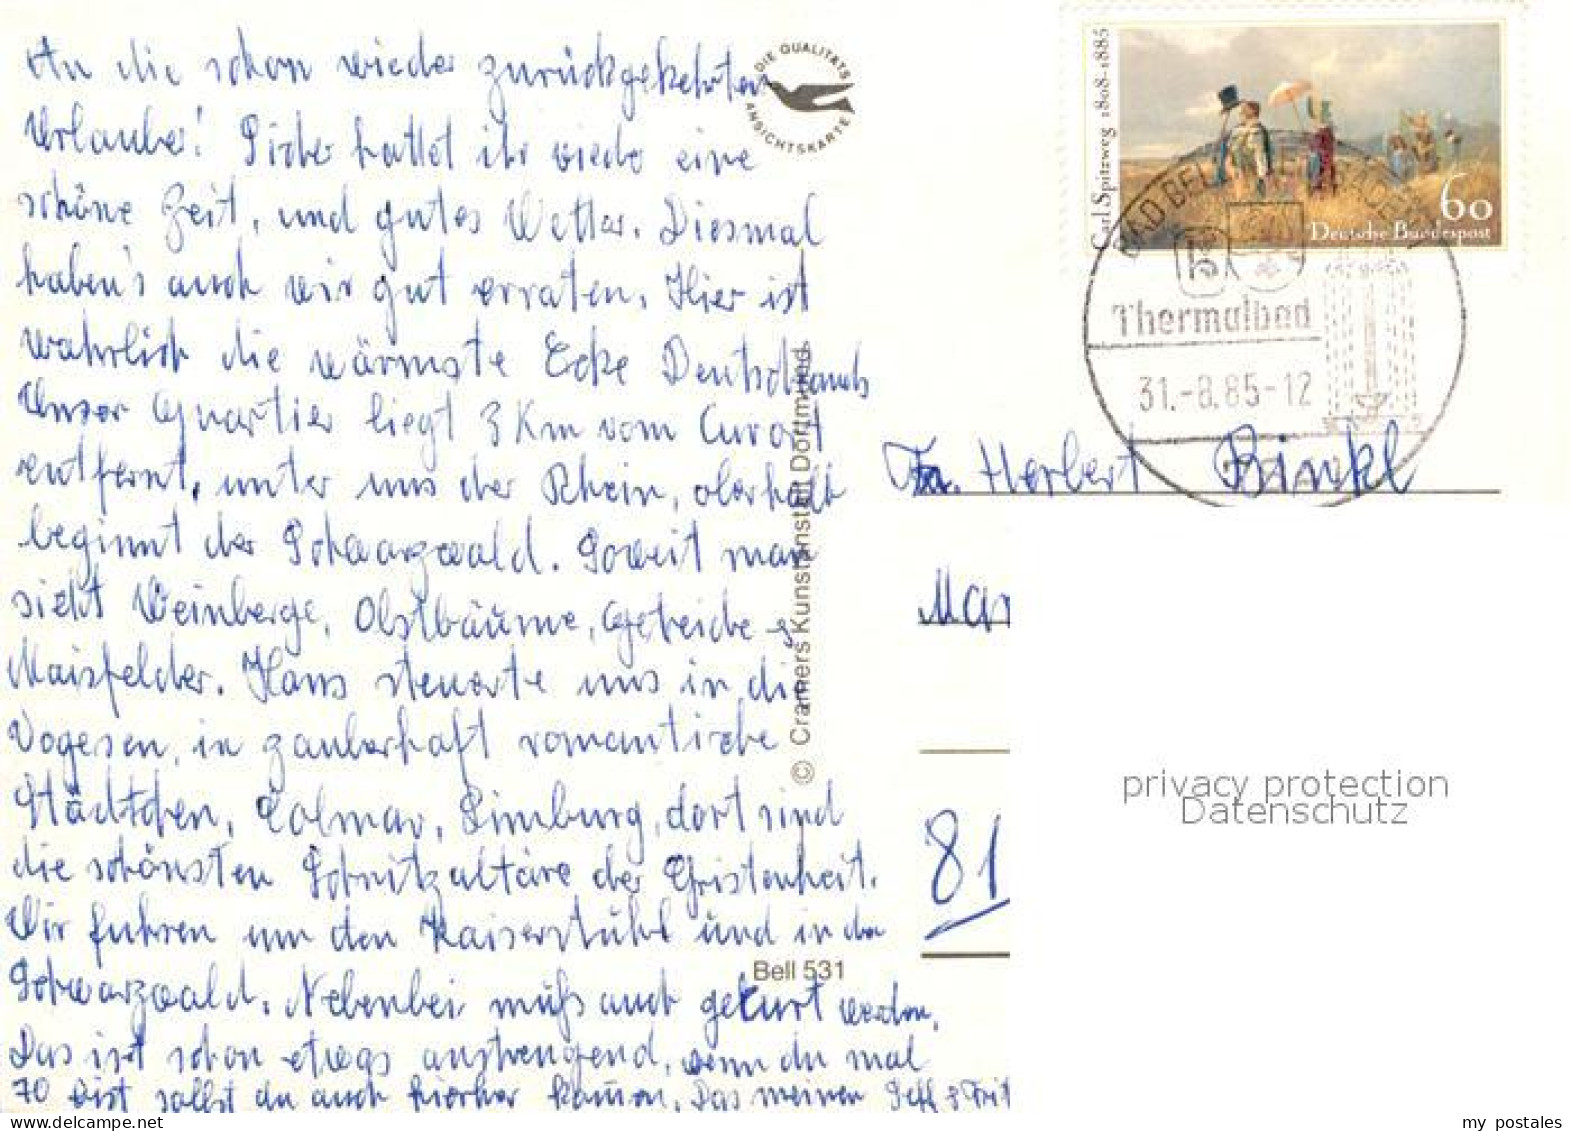 An die schon wieder zurückgekehrten
Urlauber! Sicher hattet ihr wieder eine
schöne Zeit, und gutes Wetter. Diesmal
haben's auch wir gut erraten. Hier ist
wahrlich die wärmste Ecke Deutschlands
Unser Quartier liegt 3 Km vom Curort
entfernt, unter uns der Rhein, oberhalb
beginnt der Schwarzwald. Soweit man
sieht Weinberge, Obstbäume, Getreide &
Maisfelder. Hans steuerte uns in die
Vogesen, in zauberhaft romantische
Städtchen, Colmar, Limburg, dort sind
die schönsten Schnitzaltäre der Christenheit.
Wir fuhren um den Kaiserstuhl und in den
Schwarzwald. Nebenbei muß auch gekurt werden.
Das ist schon etwas anstrengend, wenn du mal
70 bist sollst du auch hierher kommen. Das meinen Seff & Frit
DIE QUALITÄTS
ANSICHTSKARTE
© Cramers Kunstanstalt Dortmund
Bell 531
Carl Spitzweg 1808-1885
60
Deutsche Bundespost
BAD BELLINGEN BADEN
Thermalbad
31.-8.85-12
Fa. Herbert Binkl
Mar
81
privacy protection
Datenschutz
my postales